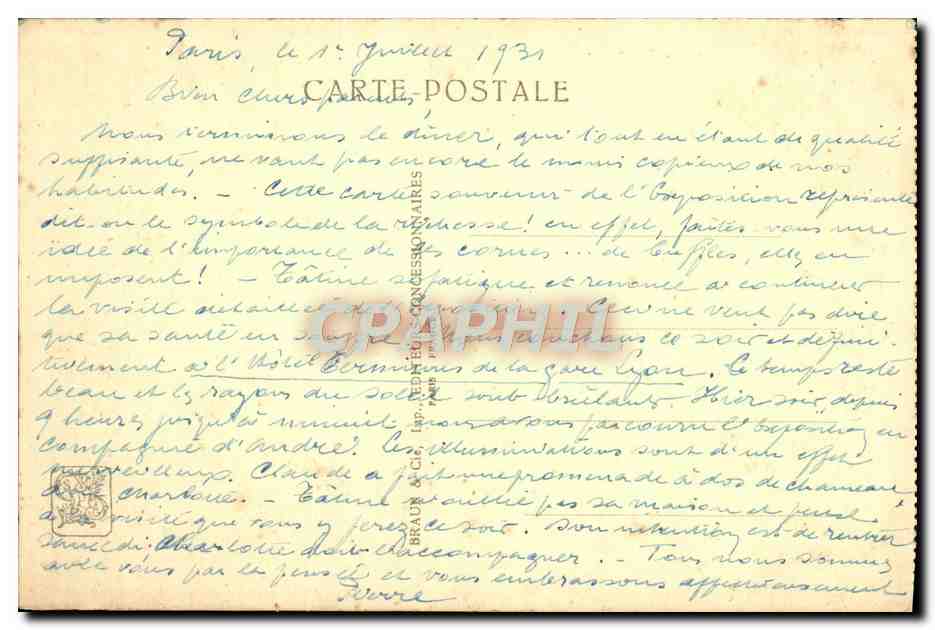 Paris, le 1r Juillet 1931
CARTE POSTALE
Bien chers parents,
Nous terminons le dîner, qui tout en étant de qualité
suffisante, ne vaut pas encore le menu copieux de nos
habitudes. - Cette carte souvenir de l'Exposition représente
dit-on le symbole de la richesse! en effet, faites-vous une
idée de l'importance de ces cornes... de buffles, elles en
imposent! - Tâtine se fatigue et renonce à continuer
la visite détaillée de l'exposition. Ceci ne veut pas dire
que sa santé en souffre. Nous couchons ce soir et défini-
tivement à l'Hôtel Terminus de la gare Lyon. Le temps reste
beau et les rayons du soleil sont brûlants. Hier soir, depuis
9 heures jusqu'à minuit nous avons parcouru l'Exposition en
compagnie d'André. Les illuminations sont d'un effet
merveilleux. Claude a fait une promenade à dos de chameau
Charlotte. - Tâtine n'oublie pas sa maison et pense à
visite que vous y ferez ce soir. Son intention est de rentrer
samedi. Charlotte doit l'accompagner. - Tous nous sommes
avec vous par la pensée et vous embrassons affectueusement
Pierre
BRAUN & Cie, Imp. EDITEURS-CONCESSIONNAIRES
PARIS
CPAPHIL